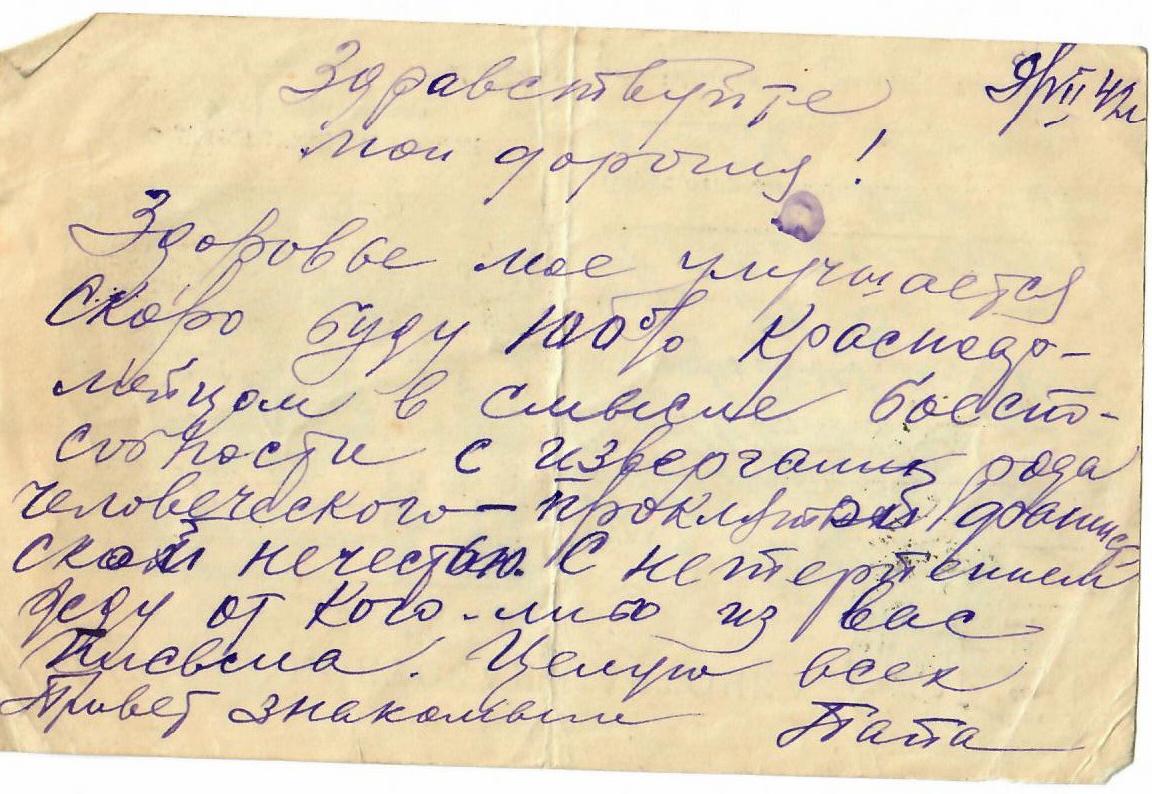 9/VII 42г
Здравствуйте
мои дорогия!
Здоровье мое улучшается
Скоро буду 100% Красноар-
мейцом в смысле боеспо-
собности с извергами рода
человеческого — проклятой фашист
ской нечестью. С нетерпением
жду от кого-либо из вас
письма. Целую всех
Привет знакомым Папа